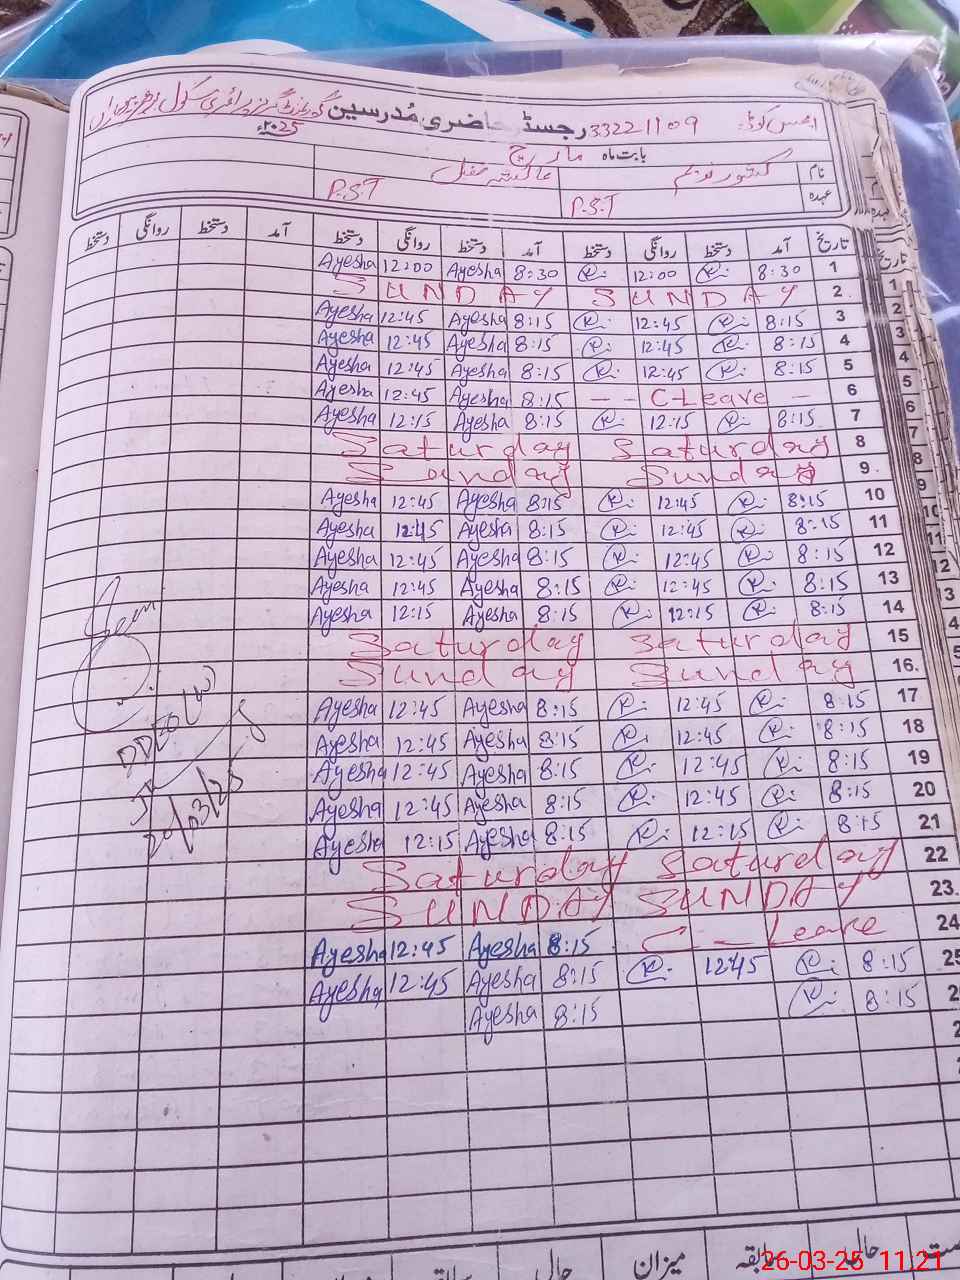 ایمس کوڈ: 33221109 رجسٹر حاضری مُدرسین گورنمنٹ گرلز پرائمری سکول
2025ء
بابت ماہ مارچ
نام کشور نسیم
عہدہ P.S.T P.S.T
تاریخ آمد دستخط روانگی دستخط آمد دستخط روانگی دستخط آمد دستخط روانگی دستخط
Ayesha 12:00 Ayesha 8:30 12:00 8:30 1
SUNDAY SUNDAY 2
Ayesha 12:45 Ayesha 8:15 12:45 8:15 3
Ayesha 12:45 Ayesha 8:15 12:45 8:15 4
Ayesha 12:45 Ayesha 8:15 12:45 8:15 5
Ayesha 12:45 Ayesha 8:15 -- C-Leave - 6
Ayesha 12:15 Ayesha 8:15 12:15 8:15 7
Saturday Saturday 8
Sunday Sunday 9.
Ayesha 12:45 Ayesha 8:15 12:45 8:15 10
Ayesha 12:45 Ayesha 8:15 12:45 8:15 11
Ayesha 12:45 Ayesha 8:15 12:45 8:15 12
Ayesha 12:45 Ayesha 8:15 12:45 8:15 13
Ayesha 12:15 Ayesha 8:15 12:15 8:15 14
Saturday Saturday 15
Sunday Sunday 16.
Ayesha 12:45 Ayesha 8:15 12:45 8:15 17
Ayesha 12:45 Ayesha 8:15 12:45 8:15 18
Ayesha 12:45 Ayesha 8:15 12:45 8:15 19
Ayesha 12:45 Ayesha 8:15 12:45 8:15 20
Ayesha 12:15 Ayesha 8:15 12:15 8:15 21
Saturday Saturday 22
SUNDAY SUNDAY 23.
Ayesha 12:45 Ayesha 8:15 C-Leave 24
Ayesha 12:45 Ayesha 8:15 12:45 8:15 25
Ayesha 8:15 8:15 2
DDEO (W)
20/03/25
سابقہ میزان حالی
26-03-25 11:21